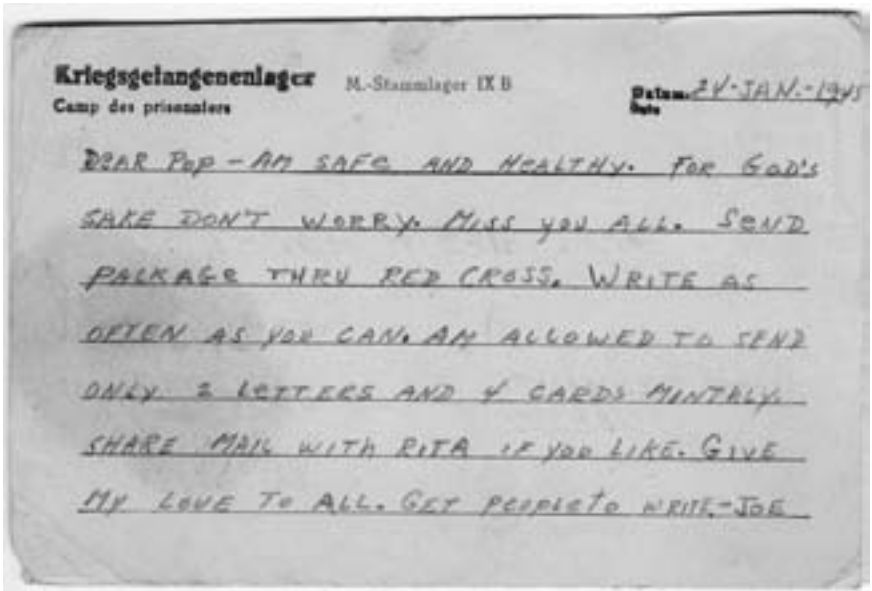 Kriegsgefangenenlager M.-Stammlager IX B Datum 24-JAN.-1945
Camp des prisonniers Date
DEAR POP - AM SAFE AND HEALTHY. FOR GOD'S
SAKE DON'T WORRY. MISS YOU ALL. SEND
PACKAGE THRU RED CROSS. WRITE AS
OFTEN AS YOU CAN. AM ALLOWED TO SEND
ONLY 2 LETTERS AND 4 CARDS MONTHLY.
SHARE MAIL WITH RITA IF YOU LIKE. GIVE
MY LOVE TO ALL. GET PEOPLE TO WRITE - JOE